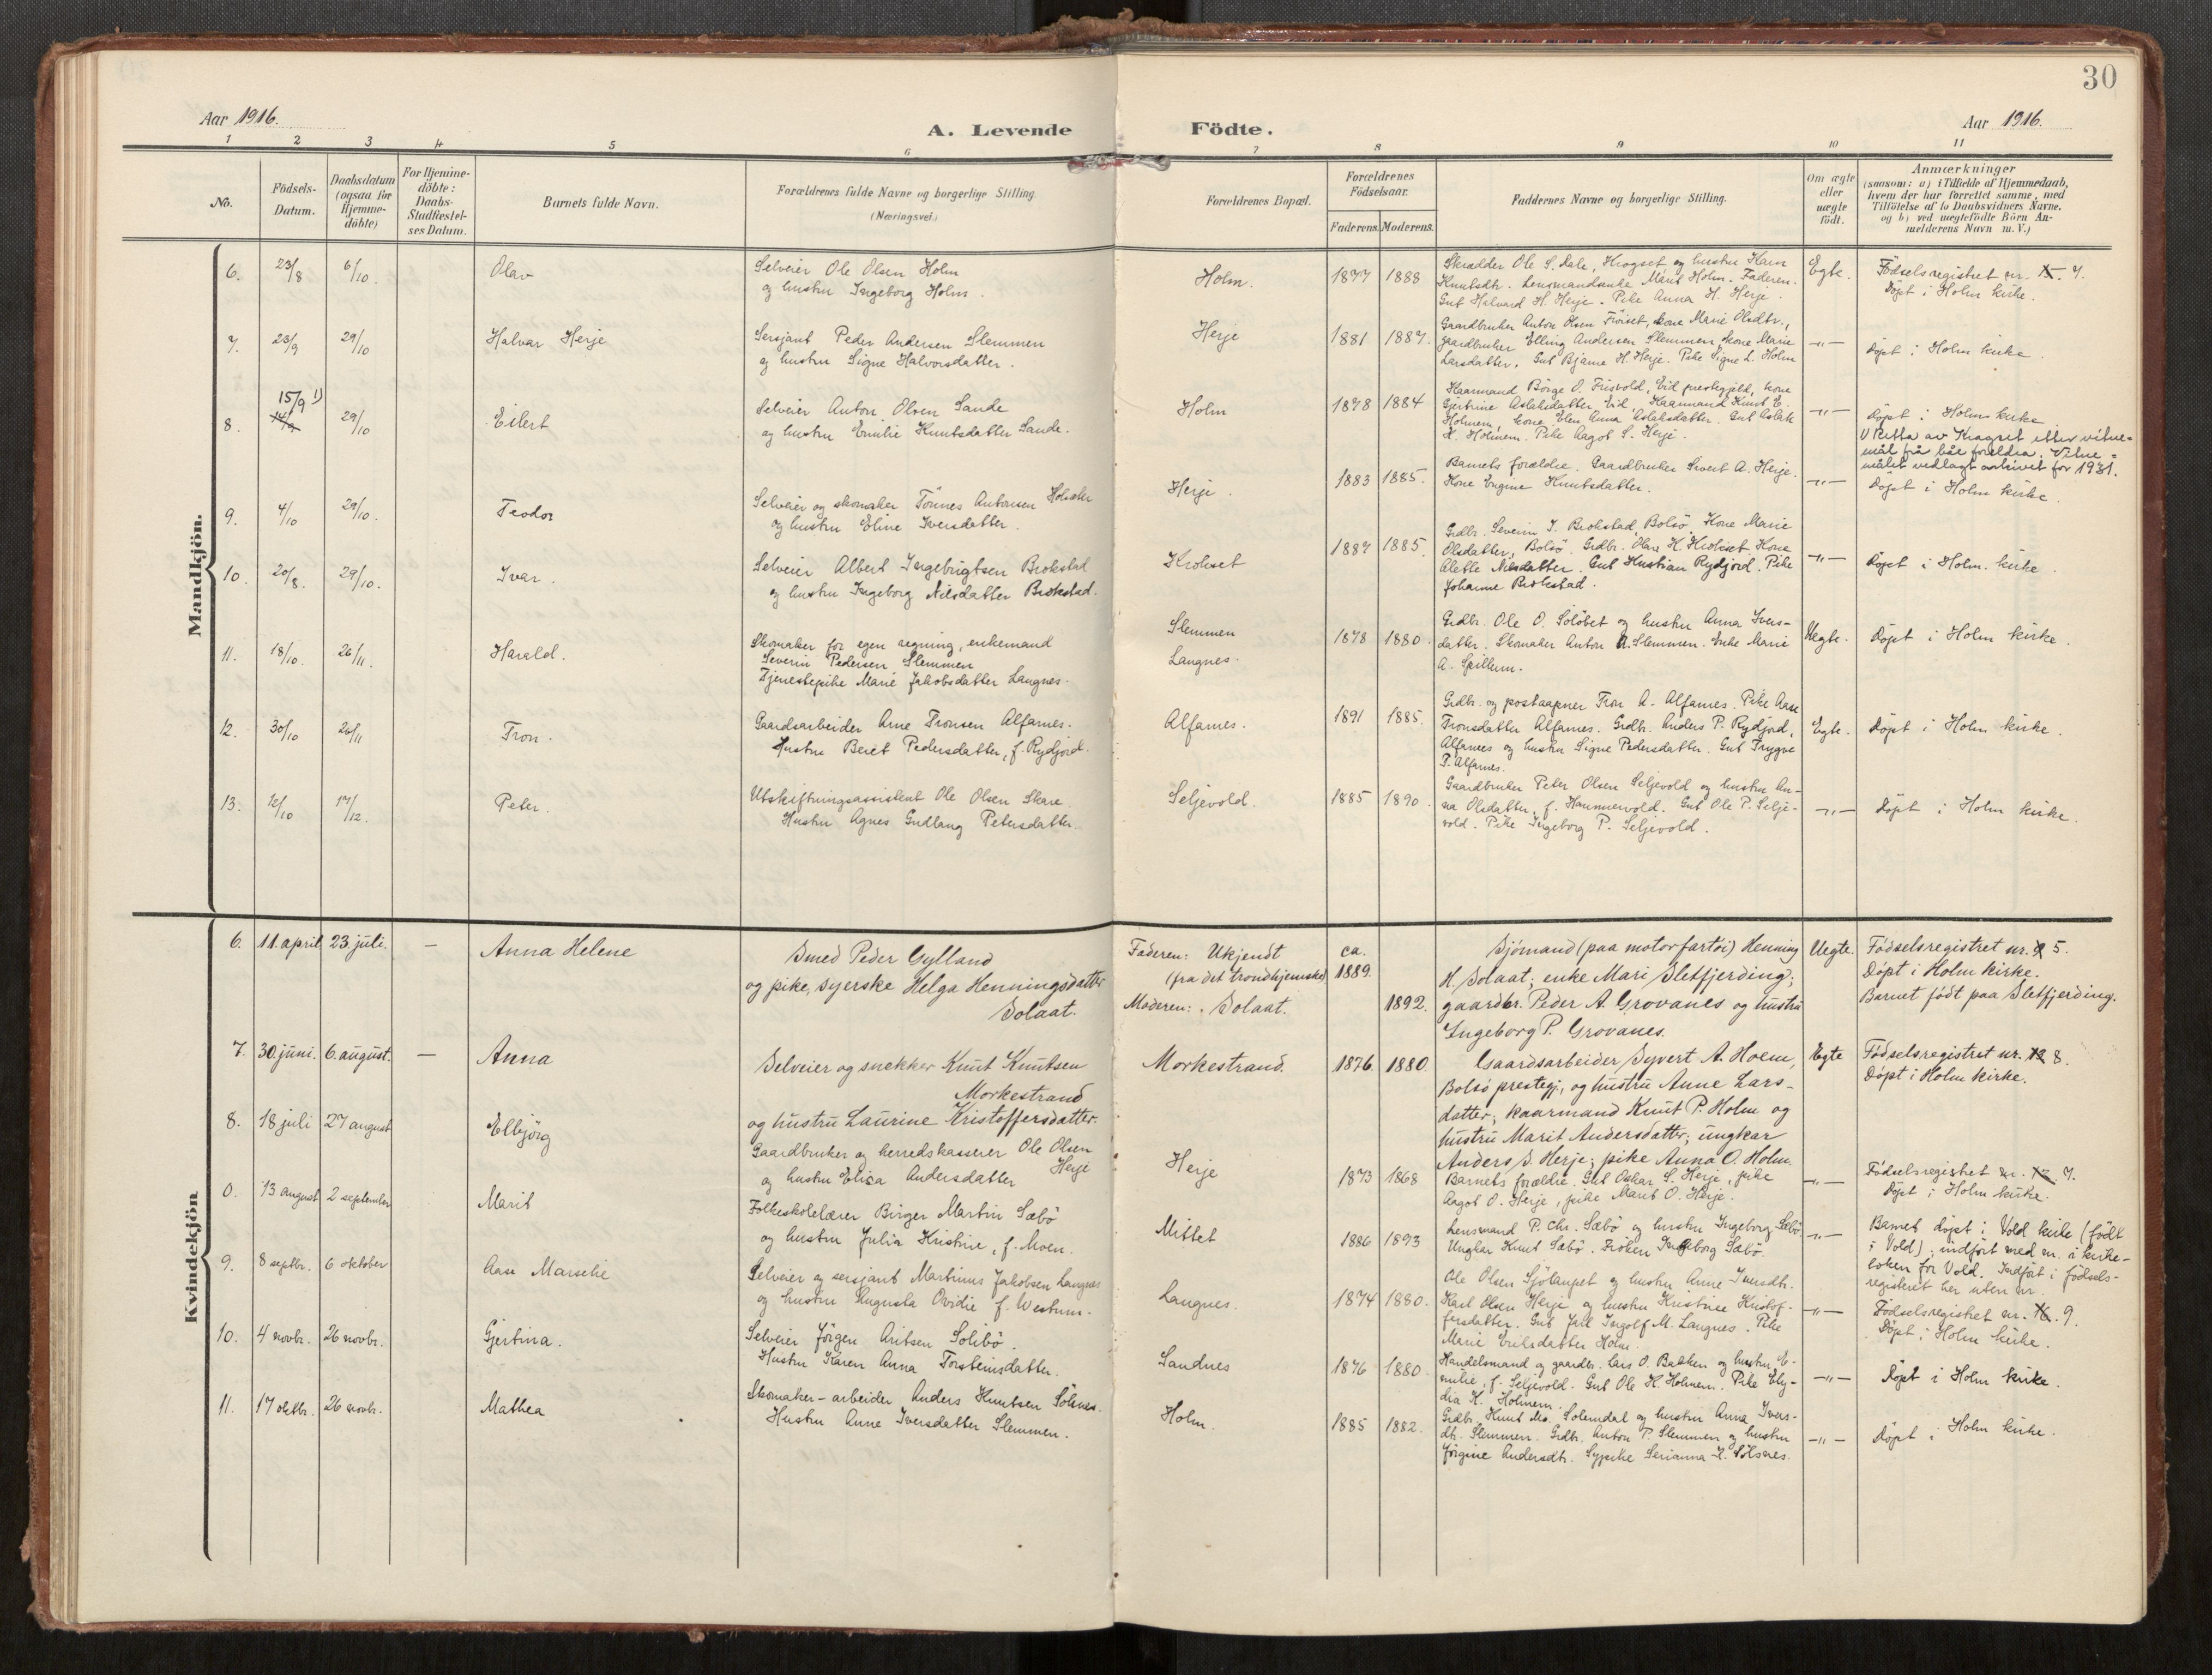 30
Aar 1916.
A. Levende Födte.
Aar 1916.
1 2 3 4 5 6 7 8 9 10 11
No.
Födsels-
Datum.
Daabsdatum
(ogsaa for
Hjemme-
döbte)
For Hjemme-
döbte:
Daabs-
Stadfæstel-
ses Datum.
Barnets fulde Navn.
Forældrenes fulde Navne og borgerlige Stilling.
(Næringsvei.)
Forældrenes Bopæl.
Forældrenes
Födselsaar.
Faderens. Moderens.
Faddernes Navne og borgerlige Stilling.
Om ægte
eller
uægte
födt.
Anmærkninger
(saasom: a) i Tilfælde af Hjemmedaab,
hvem der har forrettet samme, med
Tilföielse af to Daabsvidners Navne.
og b) ved uegtefödte Börn An-
melderens Navn m. V.)
Mandkjön.
6. 23/8 6/10. Olav
Selveier Ole Olsen Holm
og hustru Ingeborg Holm.
Holm. 1877 1888
Skrædder Ole S. Dale, Krogset og hustru Karn
Knutsdtr. Lensmandsenke Marit Holm. Faderen.
Gut Halvard H. Herje. Pike Anna H. Herje.
Egte.
Födselsregistret nr. 15. 7.
Döpt i Holm kirke.
7. 23/9 29/10 Halvar Herje
Sersjant Peder Andersen Slemmen
og hustru Signe Halvorsdatter.
Herje 1881 1887.
Gaardbruker Anton Olsen Fröiset, kone Marie Olsdtr.,
gaardbruker Elling Andersen Slemmen, kone Marie
Larsdatter. Gut Bjarne H. Herje. Pike Signe L. Holm
-"- Döpt i Holm kirke.
8. 15/9 1) 14/9 29/10 Eilert
Selveier Anton Olsen Sande
og hustru Emilie Knutsdatter Sande.
Holm 1878 1884
Kaarmand Börge O. Frisvold, Eid prestegjeld, kone
Gjertine Aslaksdatter Eid, Kaarmand Knut E.
Holmem, kone Elen Anna Aslaksdatter. Gut Aslak
K. Holmem. Pike Aagot S. Herje.
-"- Döpt i Holm kirke
1) Retta av Kragset etter vitne-
mål frå båe foreldra. Vitne-
målet vedlagt arkivet for 1931.
9. 4/10 29/10. Teodor
Selveier og skomaker Tönnes Antonsen Holsæter
og hustru Eline Iversdatter.
Herje. 1883 1885.
Barnets forældre. Gaardbruker Sivert A. Herje.
Kone Engine Knutsdatter.
-"- Döpt i Holm kirke.
10. 20/8. 29/10. Ivar.
Selveier Albert Ingebrigtsen Brokstad
og hustru Ingeborg Nilsdatter Brokstad.
Krohset 1887 1885.
Grdbr. Severin I. Brokstad, Bolsö, Kone Marie
Olsdatter, Bolsö. Grdbr. Olav H. Krohset. Kone
Alette Nilsdatter. Gut Kristian Rydjord. Pike
Johanne Brokstad.
-"- Döpt i Holm kirke.
11. 18/10. 26/11. Harald.
Skomaker for egen regning, enkemand
Severin Pedersen Slemmen
Tjenestepike Marie Jakobsdatter Langnes.
Slemmen
Langnes. 1878 1880.
Grdbr. Ole O. Solöbet og hustru Anna Ivers-
datter. Skomaker Anton A. Slemmen. Enke Marie
A. Spillum.
Uegte. Döpt i Holm kirke.
12. 30/10 26/11 Tron.
Gaardsarbeider Arne Tronsen Alfarnes.
Hustru Beret Pedersdatter, f. Rydjord.
Alfarnes. 1891 1885.
Grdbr. og postaapner Tron A. Alfarnes. Pike Aase
Tronsdatter Alfarnes. Grdbr. Anders P. Rydjord,
Alfarnes og hustru Signe Pedersdatter. Gut Trygve
T. Alfarnes.
Egte. Döpt i Holm kirke.
13. 12/10 17/12. Peter.
Utskiftningsassistent Ole Olsen Skare.
Hustru Agnes Gudlaug Petersdatter.
Seljevold. 1885 1890.
Gaardbruker Peter Olsen Seljevold og hustru An-
na Olsdatter, f. Hammervold. Gut Ole P. Selje-
vold. Pike Ingeborg P. Seljevold.
-"- Döpt i Holm kirke.
Kvindekjön
6. 11. april 23. juli. — Anna Helene
Smed Peder Gylland
og pike, syerske Helga Henningsdatter
Solaat.
Faderen: Ukjendt
(fra det trondhjemske)
Moderen: Solaat.
ca.
1889.
1892.
Sjömand (paa motorfartöi) Henning
H. Solaat; enke Mari Sletfjerding;
gaardbr. Peder A. Grovanes og hustru
Ingeborg P. Grovanes.
Uegte. Födselsregistret nr. 5.
Döpt i Holm kirke.
Barnet födt paa Sletfjerding.
7. 30. juni. 6. august. — Anna
Selveier og snekker Knut Knutsen
Morkestrand
og hustru Laurine Kristoffersdatter.
Morkestrand. 1876. 1880.
Gaardsarbeider Syvert A. Hoem,
Bolsö prestegj., og hustru Anne Lars-
datter; kaarmand Knut P. Holm og
hustru Marit Andersdatter; ungkar
Anders S. Herje; pike Anna O. Holm.
Egte Födselsregistret nr. 12 8.
Döpt i Holm kirke.
8. 18 juli 27 august Elbjörg
Gaardbruker og herredskasserer Ole Olsen
Herje
og hustru Elisa Andersdatter
Herje 1873 1868
Barnets forældre. Gut Oskar S. Herje, pike
Aagot O. Herje, pike Marit O. Herje.
-"- Födselsregistret nr. 12. 7.
Döpt i Holm kirke.
0. 13 august 2 september Marit
Folkeskolelærer Birger Martin Sæbö
og hustru Julia Kristine, f. Moen.
Mittet 1886 1893
Lensmand P. Chr. Sæbö og hustru Ingeborg Sæbö.
Ungkar Knut Sæbö. Fröken Ingeborg Sæbö.
-"- Barnet döpt i Vold kirke (födt
i Vold); indfört med nr. i kirke-
boken for Vold. Indfört i födsels-
registeret her uten nr.
9. 8 septbr. 6 oktober Aase Marselie
Selveier og sersjant Martinus Jakobsen Langnes
og hustru Augusta Ovidie f. Westum.
Langnes. 1874 1880.
Ole Olsen Sjölaupet og hustru Anne Iversdtr.
Karl Olsen Herje og hustru Kristine Kristof-
fersdatter. Gut Jarl Ingolf M. Langnes. Pike
Marie Eriksdatter Holm.
-"- Födselsregistret nr. 16. 9.
Döpt i Holm kirke.
10. 4 novbr. 26 novbr. Gjertina.
Selveier Jörgen Aritsen Solibö.
Hustru Karen Anna Torsteinsdatter.
Sandnes 1876 1880.
Handelsmand og gaardbr. Lars O. Bakken og hustru E-
milie, f. Seljevold. Gut Ole K. Holmem. Pike Ely-
dia K. Holmem.
-"- Döpt i Holm kirke.
11. 17 oktbr. 26 novbr. Mathea
Skomaker-arbeider Anders Knutsen Sölsnes.
Hustru Anne Iversdatter Slemmen.
Holm. 1885 1882.
Grdbr. Knut Ms. Solemdal og hustru Anna Ivers-
dtr. Slemmen. Grdbr. Anton P. Slemmen og hustru
Jörgine Andersdtr. Sypike Serianna K. Sölsnes.
-"- Döpt i Holm kirke.